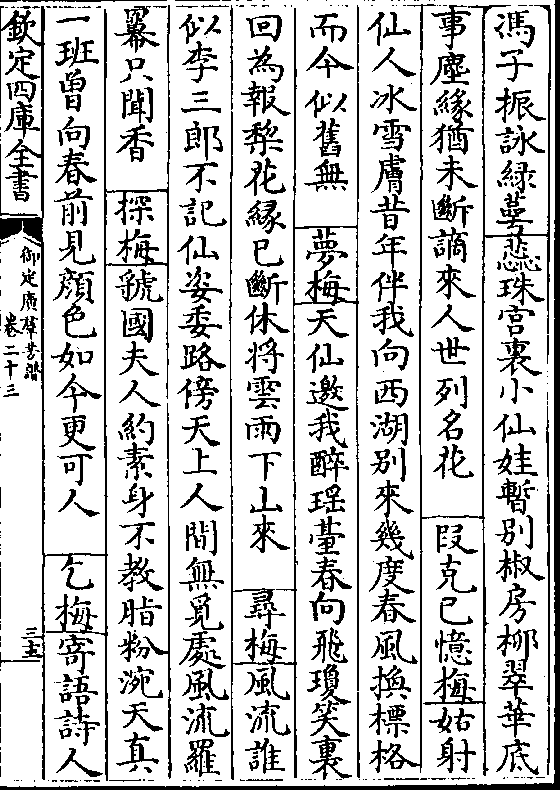 馮子振詠綠萼蕊珠宮裏小仙娃暫別椒房柳翠華底
事塵緣猶未斷謫來人世列名花　段克已憶梅姑射
仙人冰雪膚昔年伴我向西湖別來幾度春風換標格
而今似舊無　夢梅天仙邀我醉瑶臺春向飛瓊笑裏
回為報棃花緣已斷休将雲雨下山來　尋梅風流誰
似李三郎不記仙姿委路傍天上人間無覓處風流羅
幕只聞香　探梅虢國夫人約素身不教脂粉涴天真
一班曾向春前見顏色如今更可人　乞梅寄語詩人
欽定四庫全書
御定廣羣芳譜
卷二十三
三五